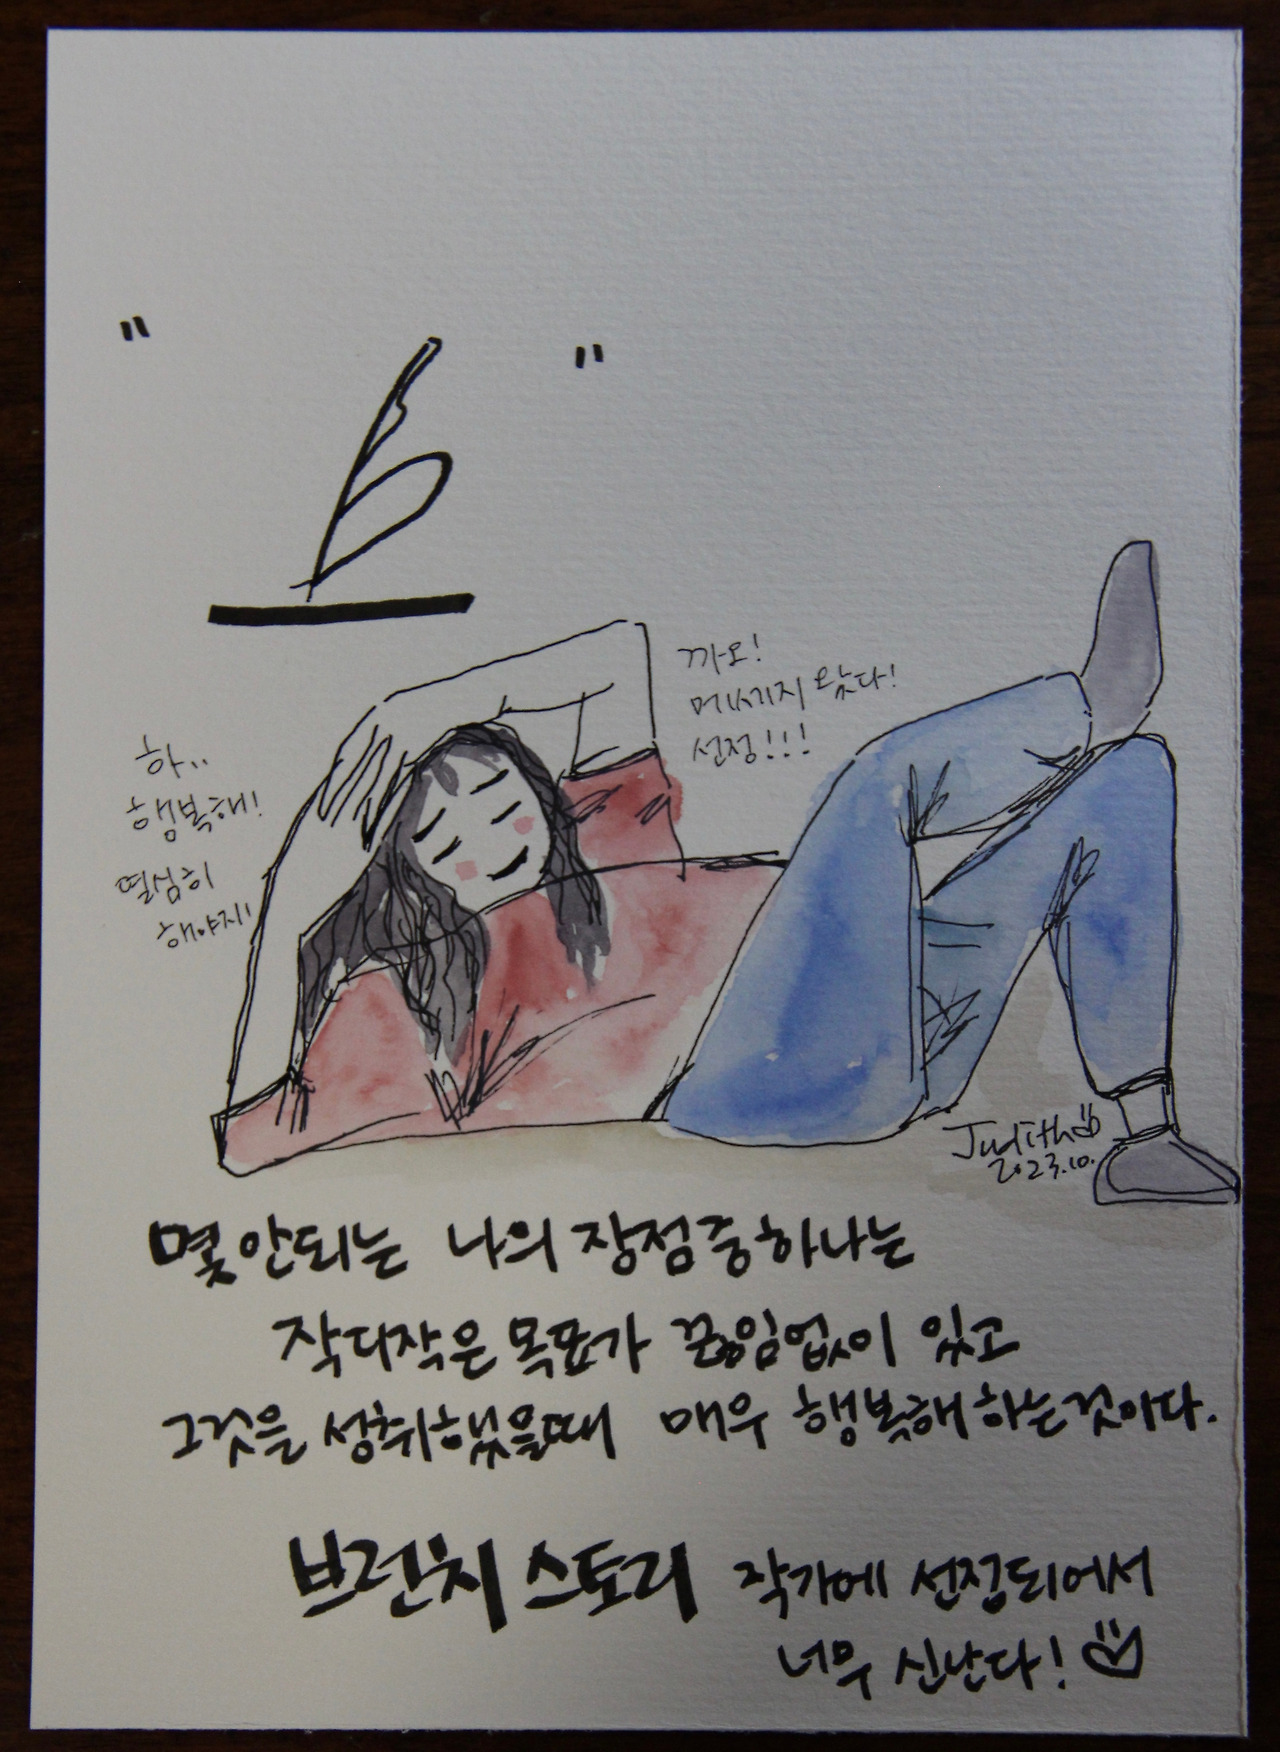 " "
까오!
메세지 왔다!
선정!!!
하..
행복해!
열심히
해야지!
Judith
2023.10.
몇 안되는 나의 장점 중 하나는
작디작은 목표가 끊임없이 있고
그것을 성취했을때 매우 행복해 하는것이다.
브런치 스토리 작가에 선정되어서
너무 신난다!